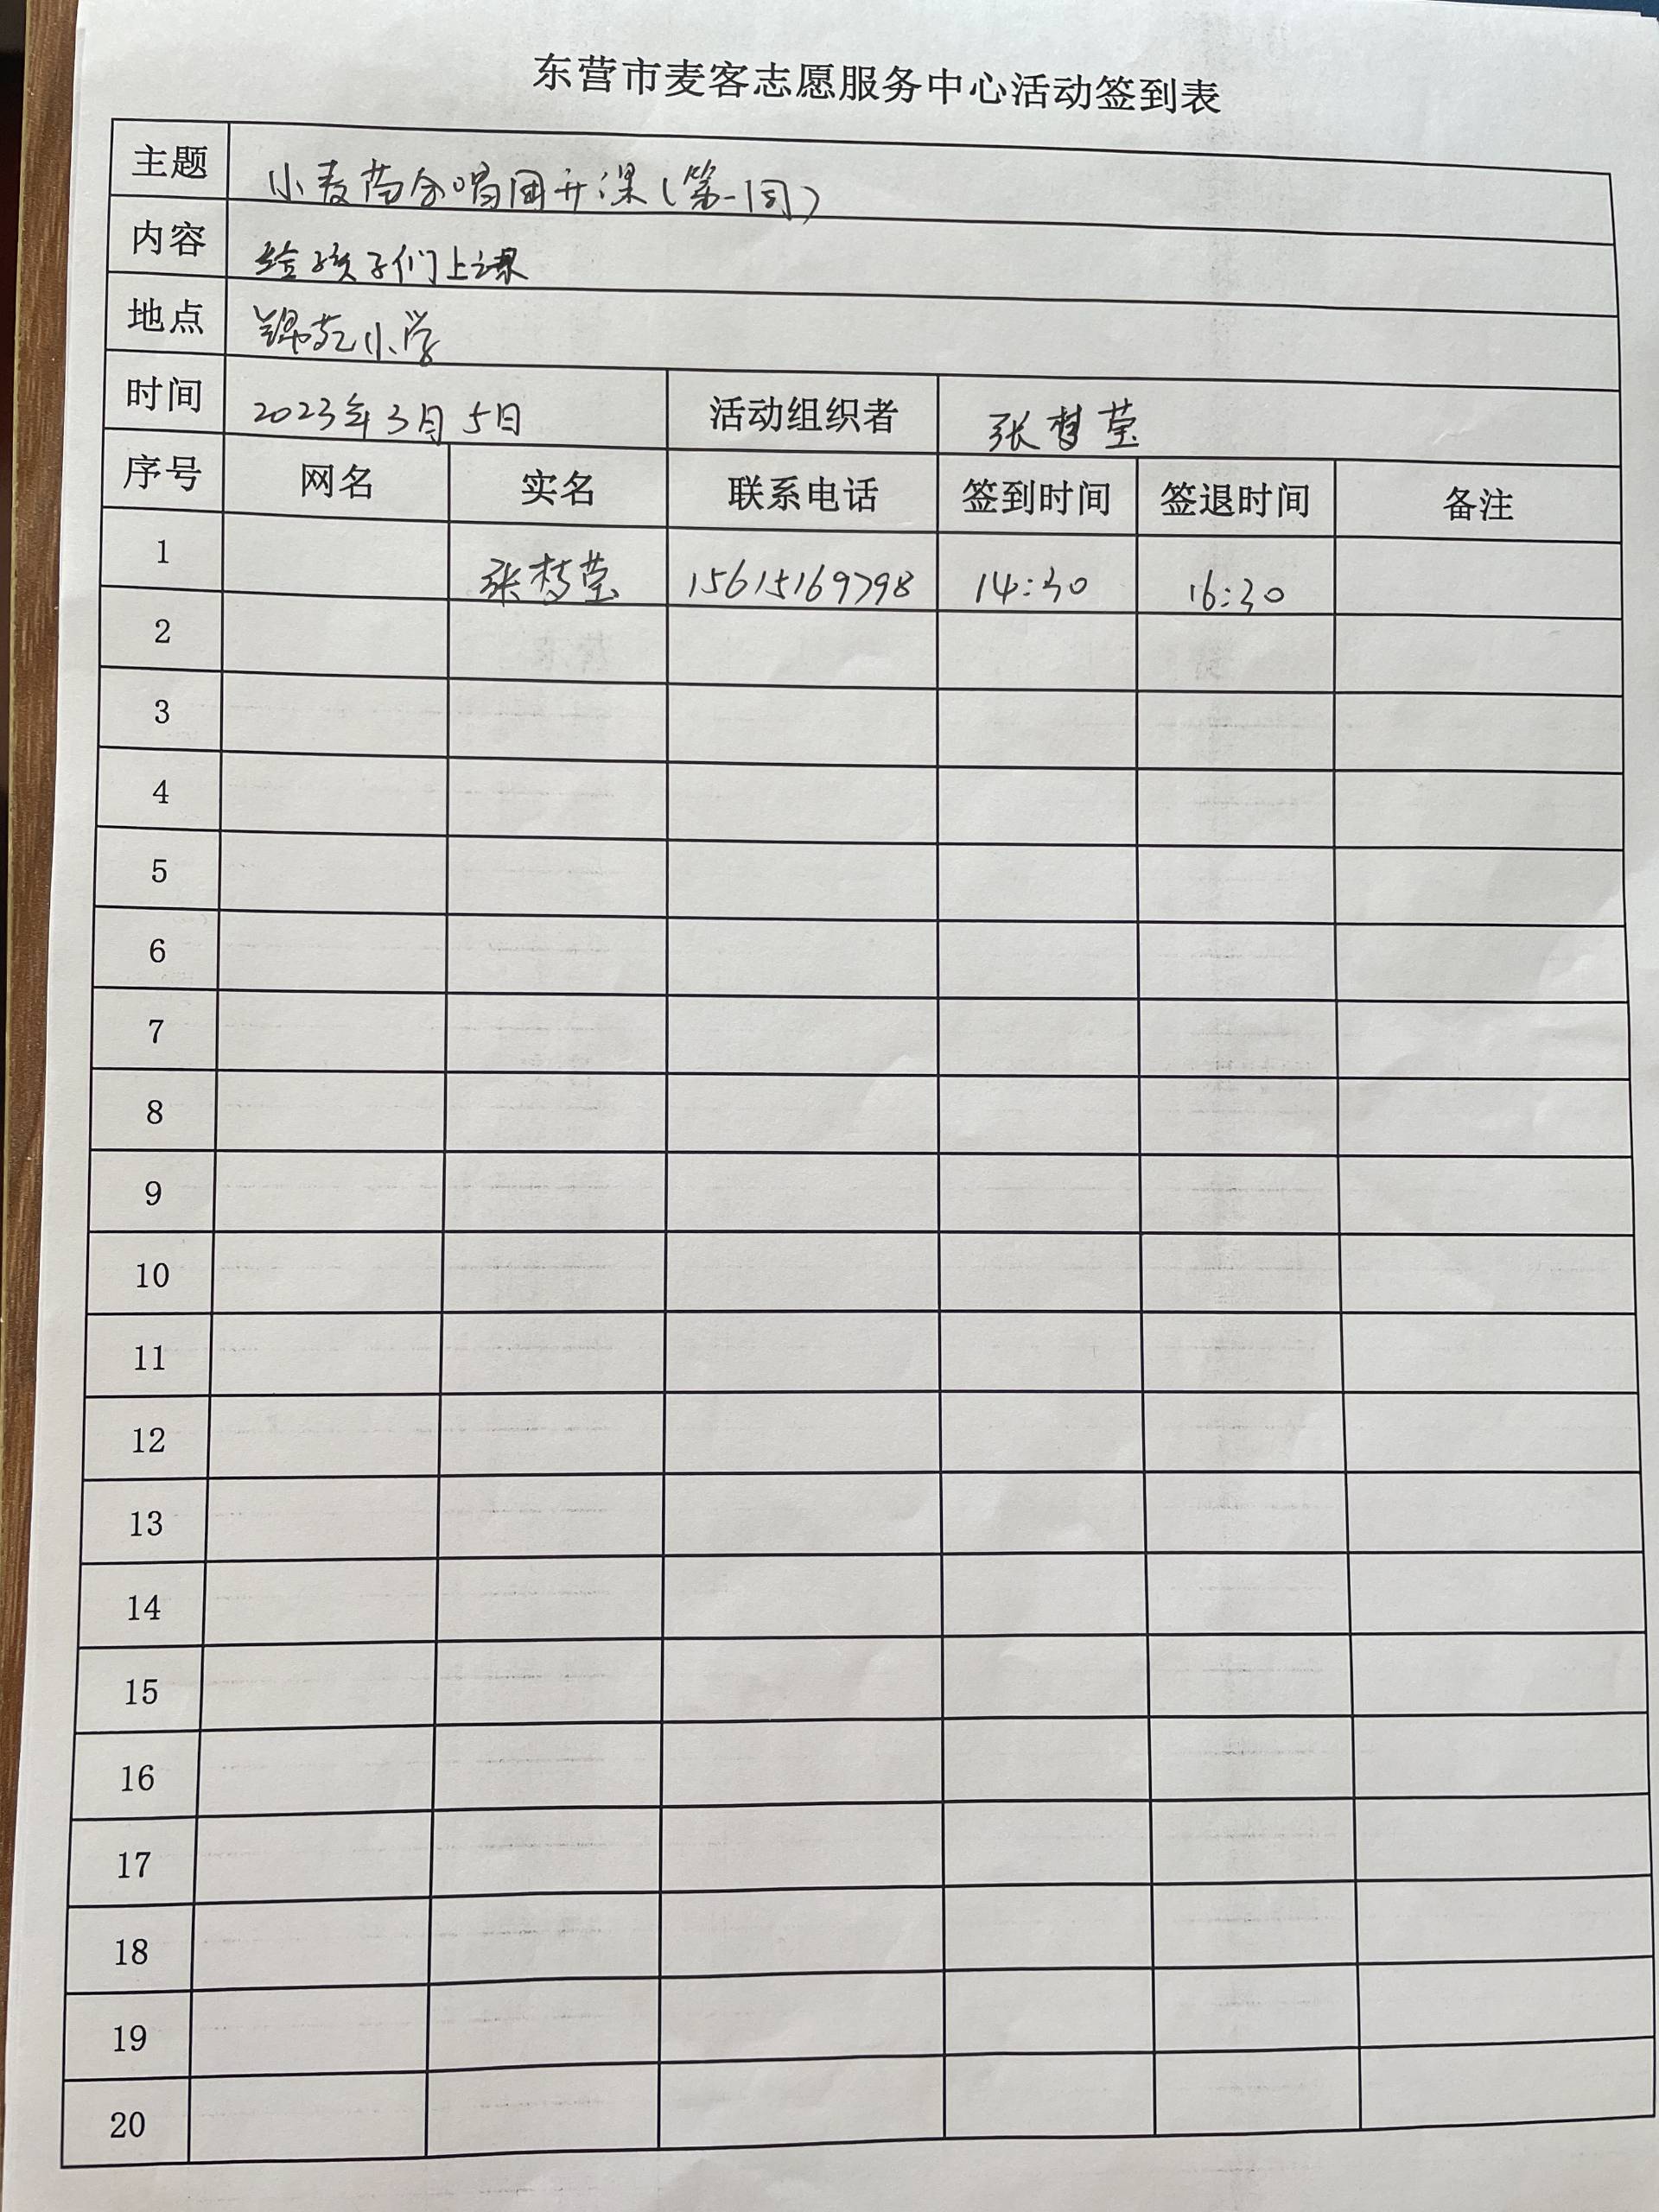 东营市麦客志愿服务中心活动签到表
主题 小麦苗合唱团开课(第一周)
内容 给孩子们上课
地点 锦苑小学
时间 2023年3月5日 活动组织者 张梦莹
序号 网名 实名 联系电话 签到时间 签退时间 备注
1 张梦莹 15615169798 14:30 16:30
2
3
4
5
6
7
8
9
10
11
12
13
14
15
16
17
18
19
20